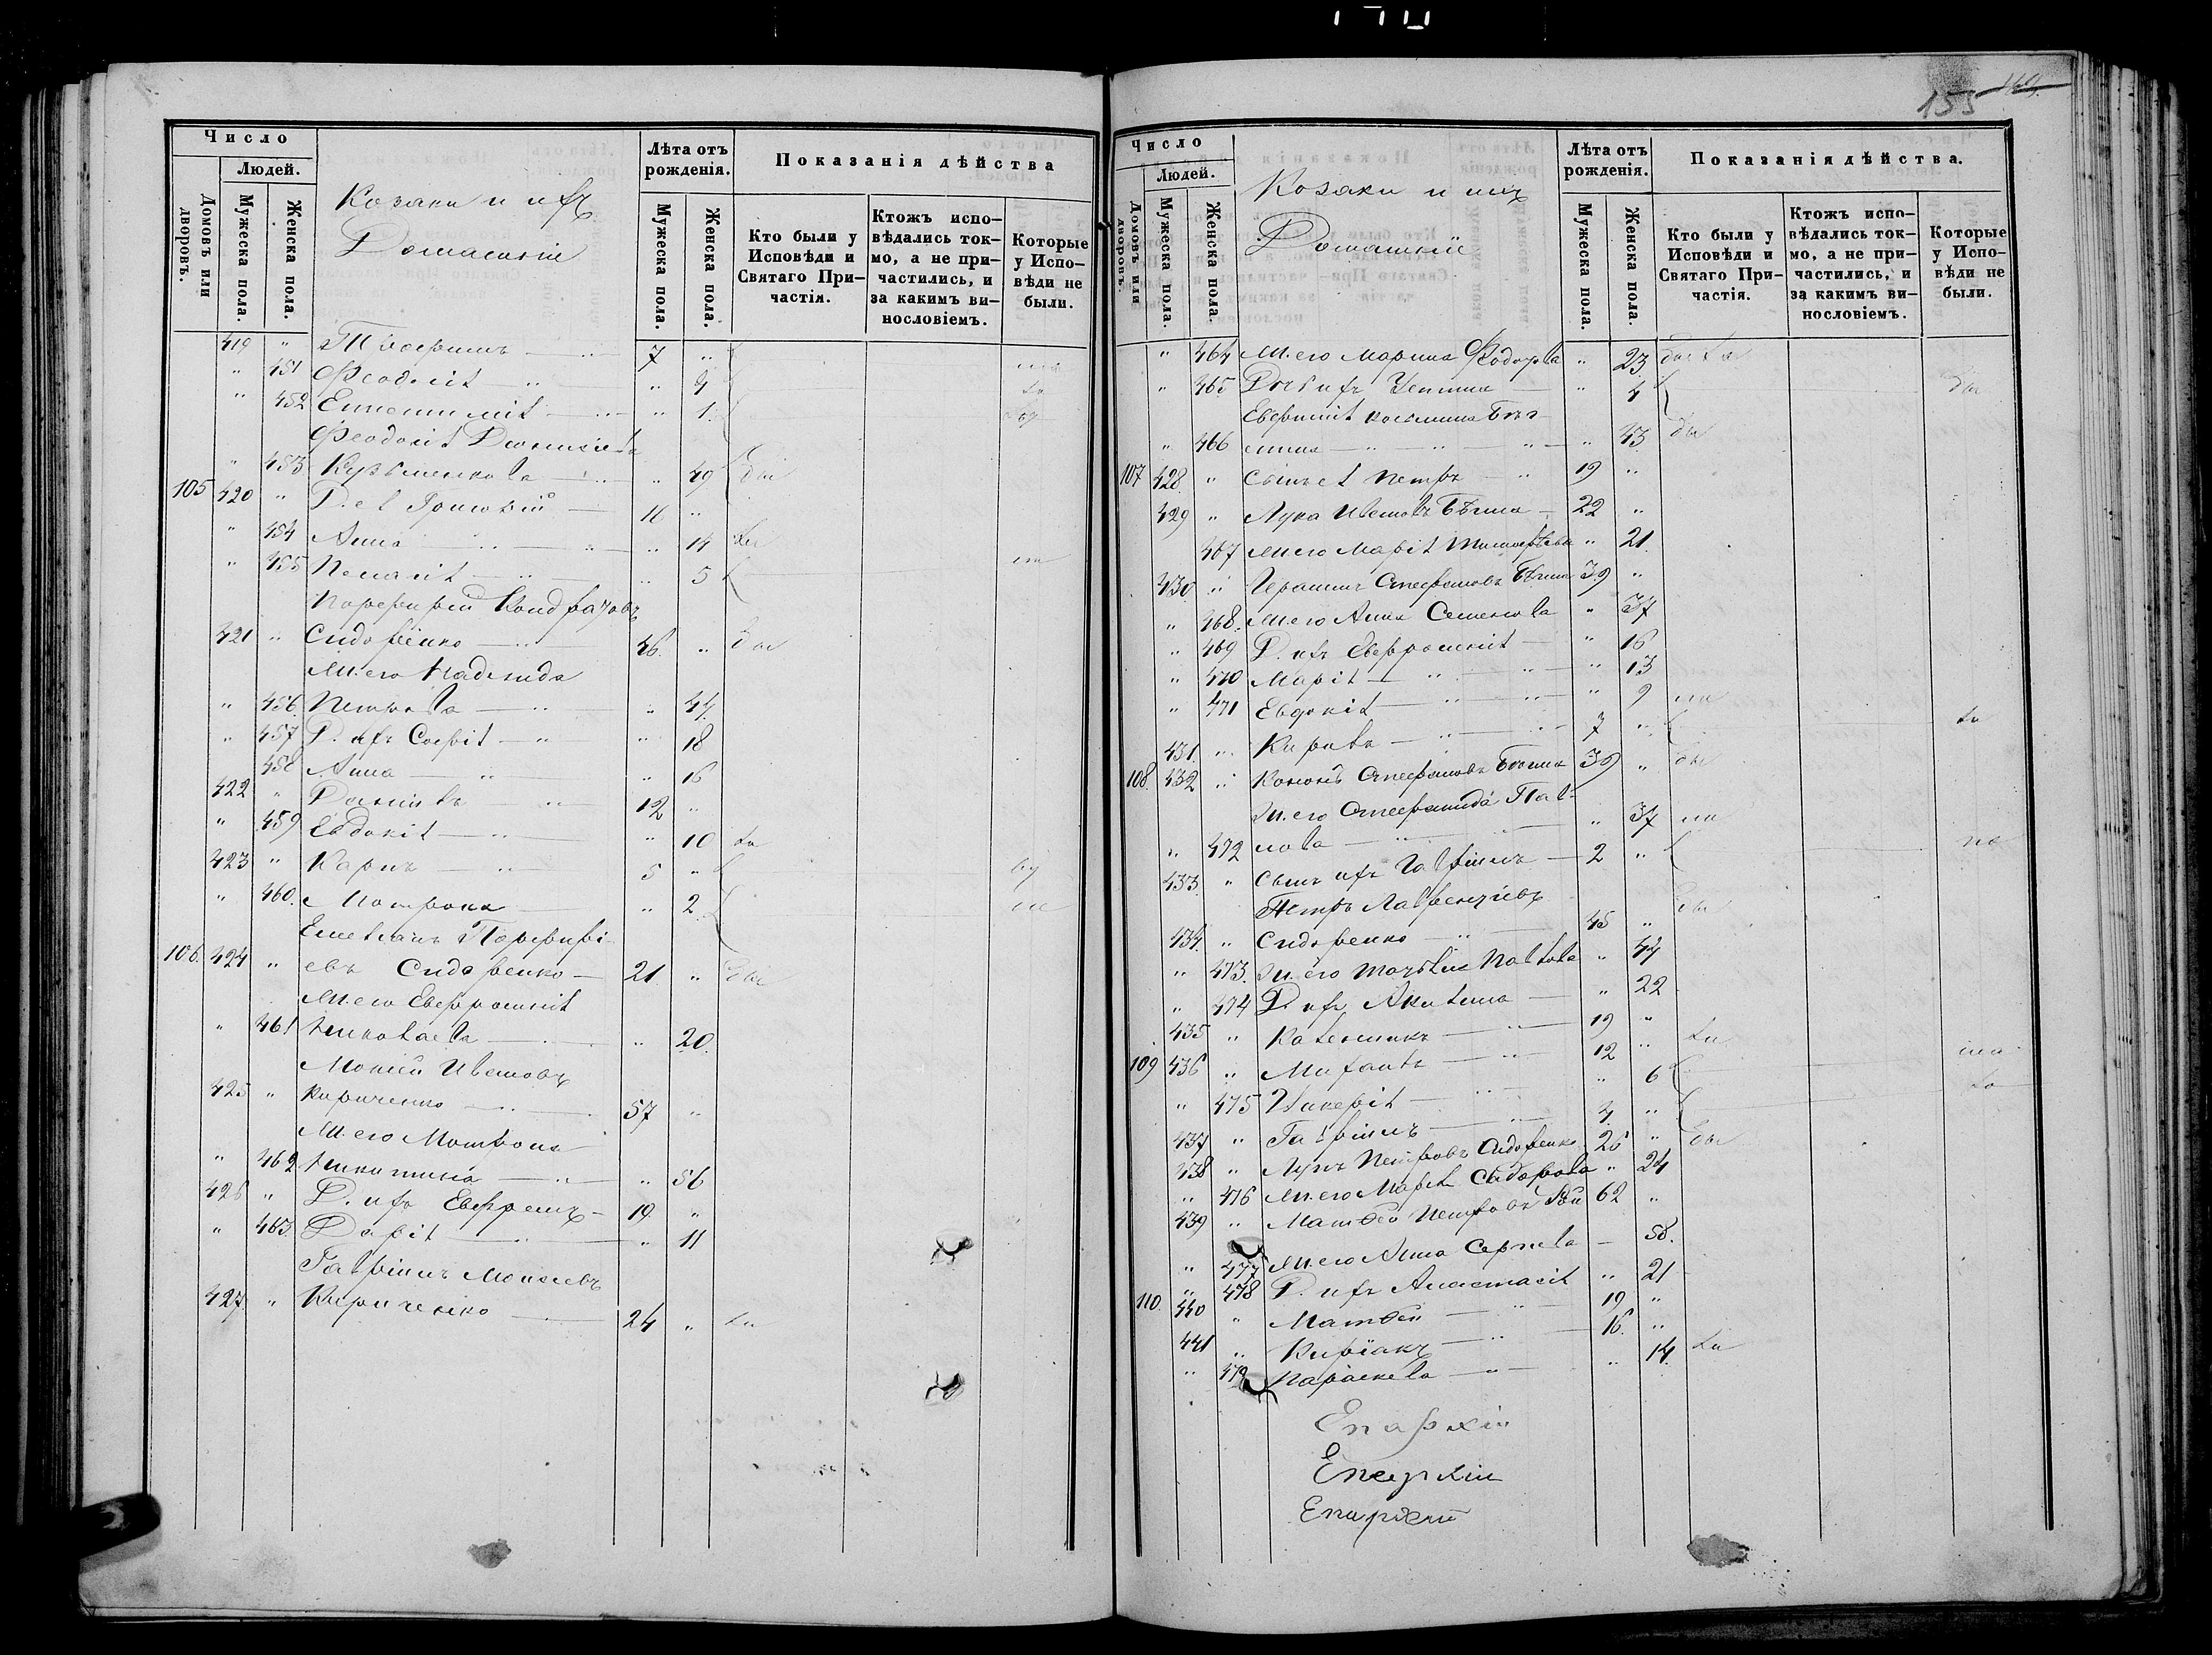 Число
Людей.
Домовъ или дворовъ.
Мужеска пола.
Женска пола.
Козаки и ихъ
Домашніе
Лѣта отъ рожденія.
Мужеска пола.
Женска пола.
Показанія дѣйства
Кто были у Исповѣди и Святаго Причастія.
Ктожъ исповѣдались токмо, а не причастились, и за какимъ винословіемъ.
Которые у Исповѣди не были.
419 " Трофимъ 7 "
" 451 Феодосія " 4
" 452 " 1
Феодосія Дионисіева
" 453 Кузьменкова " 49
105 420 " Д. ея Григорій 16 "
" 454 Анна " 14
" 455 Пелагія " 5
Порфирій Кондратовъ
421 " Сидоренко 46 "
Ж. его Надежда
" 456 Петрова " 44
" 457 Д. ихъ Софія " 18
458 Анна " 16
422 " Даніилъ 12 "
" 459 Евдокія " 10
423 " Карпъ 5 "
" 460 Матрона " 2
Емеліанъ Порфирі-
106 424 " евъ Сидоренко 21 "
Ж. его Евфросинія
" 461 Николаева " 20
Мойсей Ивановъ
425 " Кириченко 57 "
Ж. его Матрона
" 462 Никитина " 56
426 " Д. ихъ Ефремъ 19 "
" 463 Дарія " 11
Гавріилъ Моисеевъ
427 " Кириченко 24 "
155
Число
Людей.
Домовъ или дворовъ.
Мужеска пола.
Женска пола.
Козаки и ихъ
Домашніе
Лѣта отъ рожденія.
Мужеска пола.
Женска пола.
Показанія дѣйства.
Кто были у Исповѣди и Святаго Причастія.
Ктожъ исповѣдались токмо, а не причастились, и за какимъ винословіемъ.
Которые у Исповѣди не были.
" 464 Ж. его Марина Федорова " 23
" 465 Дочь ихъ Устина " 4
Евфимія Косьмина
" 466 " 43
107 428 " Сынъ ея Петръ 19 "
429 " Лука Ивановъ 22 "
467 Ж. его Марія Тимофѣева " 21
430 " Герасимъ Стефановъ 39 "
" 468 Ж. его Анна Семенова " 37
" 469 Д. ихъ Евфросинія " 16
" 470 Марія " 13
" 471 Евдокія " 9
431 " Кирилъ 7 "
108 432 " Кононъ Стефановъ 39 "
Ж. его Стефанида Пав-
" 472 лова " 37
433 " Сынъ ихъ Гавріилъ 2 "
Петръ Лаврентіевъ
434 " Сидоренко 45 "
" 473 Ж. его Павлова " 44
" 474 Д. ихъ Акилина " 22
435 " Калиникъ 19 "
109 436 " Михаилъ 12 "
" 475 Гликерія " 6
437 " Гавріилъ 4 "
438 " Лупъ Петровъ Сидоренко 26 "
" 476 Ж. его Марія Сидорова " 24
439 " Матвей Петровъ 62 "
" 477 Ж. его Анна Сергіева 58
" 478 Д. ихъ Анастасія " 21
110 440 " Матвей 19 "
441 " Киріакъ 16 "
" 479 Параскева " 14
Епархіи
Епархіи
Епархіи